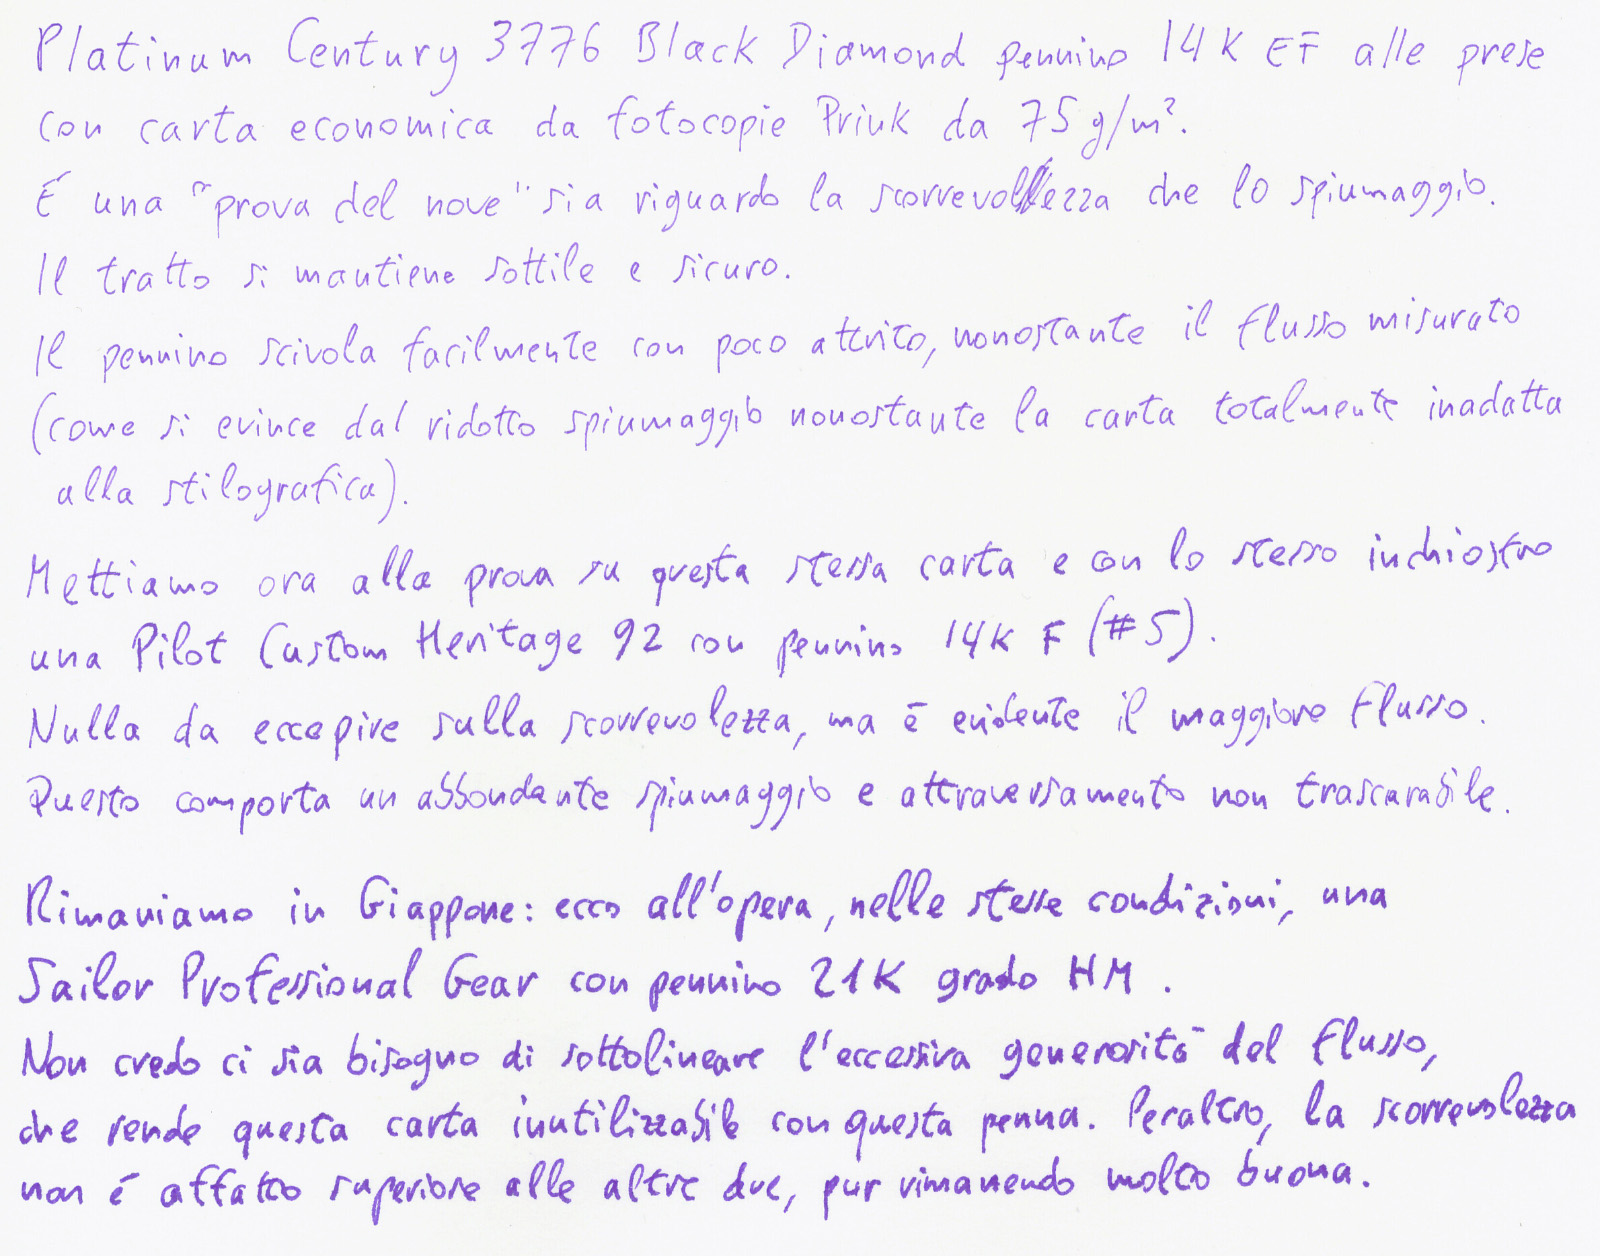 Platinum Century 3776 Black Diamond pennino 14K EF alle prese
con carta economica da fotocopie Priuk da 75 g/m².
É una "prova del nove" sia riguardo la scorrevolezza che lo spiumaggio.
Il tratto si mantiene sottile e sicuro.
Il pennino scivola facilmente con poco attrito, nonostante il flusso misurato
(come si evince dal ridotto spiumaggio nonostante la carta totalmente inadatta
alla stilografica).
Mettiamo ora alla prova su questa stessa carta e con lo stesso inchiostro
una Pilot Custom Heritage 92 con pennino 14K F (#5).
Nulla da eccepire sulla scorrevolezza, ma è evidente il maggiore flusso.
Questo comporta un abbondante spiumaggio e attraversamento non trascurabile.
Rimaniamo in Giappone: ecco all'opera, nelle stesse condizioni, una
Sailor Professional Gear con pennino 21K grado HM.
Non credo ci sia bisogno di sottolineare l'eccessiva generosità del flusso,
che rende questa carta inutilizzabile con questa penna. Peraltro, la scorrevolezza
non é affatto superiore alle altre due, pur rimanendo molto buona.